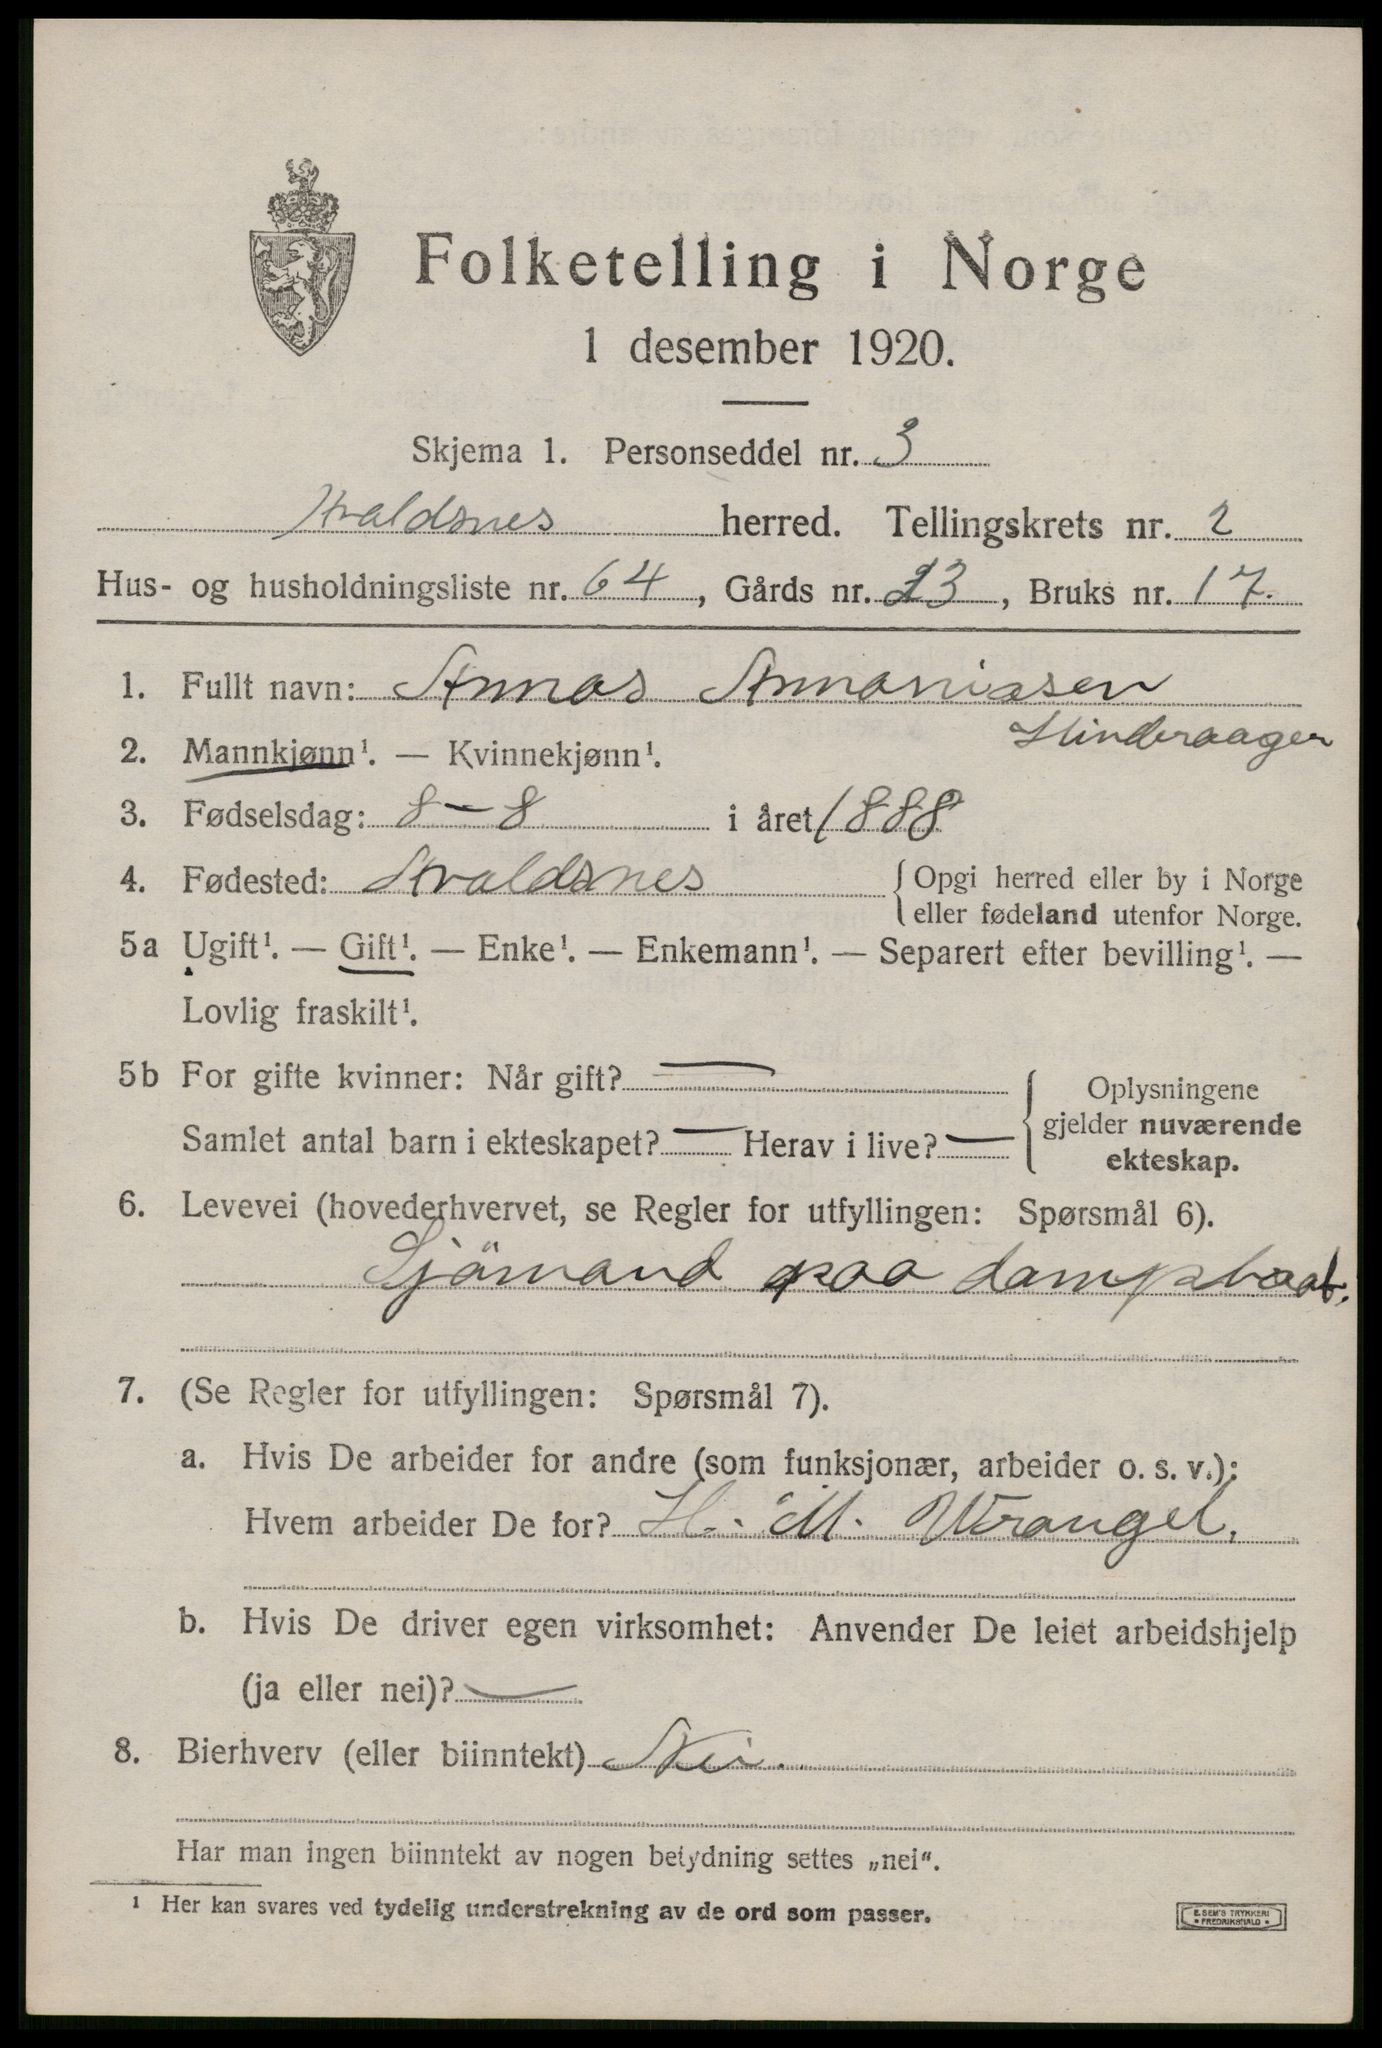 Folketelling i Norge
1 desember 1920.
Skjema 1. Personseddel nr. 3
Avaldsnes herred. Tellingskrets nr. 2
Hus- og husholdningsliste nr. 64, Gårds nr. 23, Bruks nr. 17.
1. Fullt navn: Annas Annaniasen
Hinderaager
2. Mannkjønn¹. — Kvinnekjønn¹.
3. Fødselsdag: 8 – 8 i året 1888
4. Fødested: Avaldsnes { Opgi herred eller by i Norge
eller fødeland utenfor Norge.
5a Ugift¹. — Gift¹. — Enke¹. — Enkemann¹. — Separert efter bevilling¹. —
Lovlig fraskilt¹.
5b For gifte kvinner: Når gift? —
Samlet antal barn i ekteskapet? — Herav i live? —
Oplysningene
gjelder nuværende
ekteskap.
6. Levevei (hovederhvervet, se Regler for utfyllingen: Spørsmål 6).
Sjömand paa dampbaat.
7. (Se Regler for utfyllingen: Spørsmål 7).
a. Hvis De arbeider for andre (som funksjonær, arbeider o. s. v.):
Hvem arbeider De for? H. M. Wrangel.
b. Hvis De driver egen virksomhet: Anvender De leiet arbeidshjelp
(ja eller nei)? —
8. Bierhverv (eller biinntekt) Nei.
Har man ingen biinntekt av nogen betydning settes „nei“.
¹ Her kan svares ved tydelig understrekning av de ord som passer.
E. SEM'S TRYKKERI
• FREDRIKSHALD •